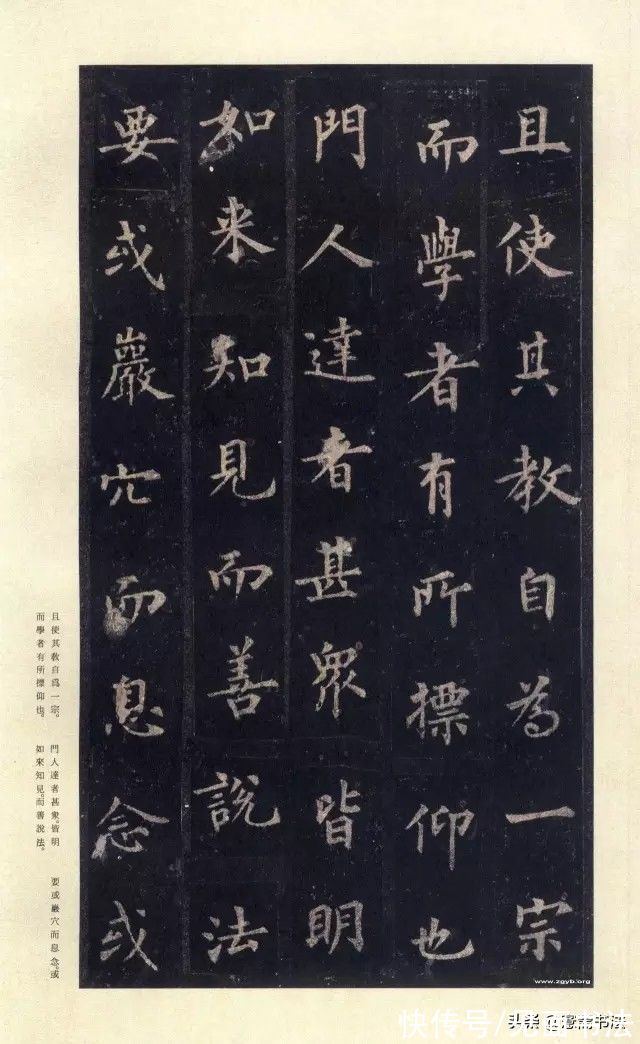 且使其教自為一宗
而學者有所標仰也
門人達者甚眾皆明
如来知見而善說法
要或巖穴而息念或
且使其敎自爲一宗。
而學者有所標仰也。
門人達者甚衆。皆明
如來知見。而善說法。
要或巖穴而息念。或
www.zgyb.org
快传号/